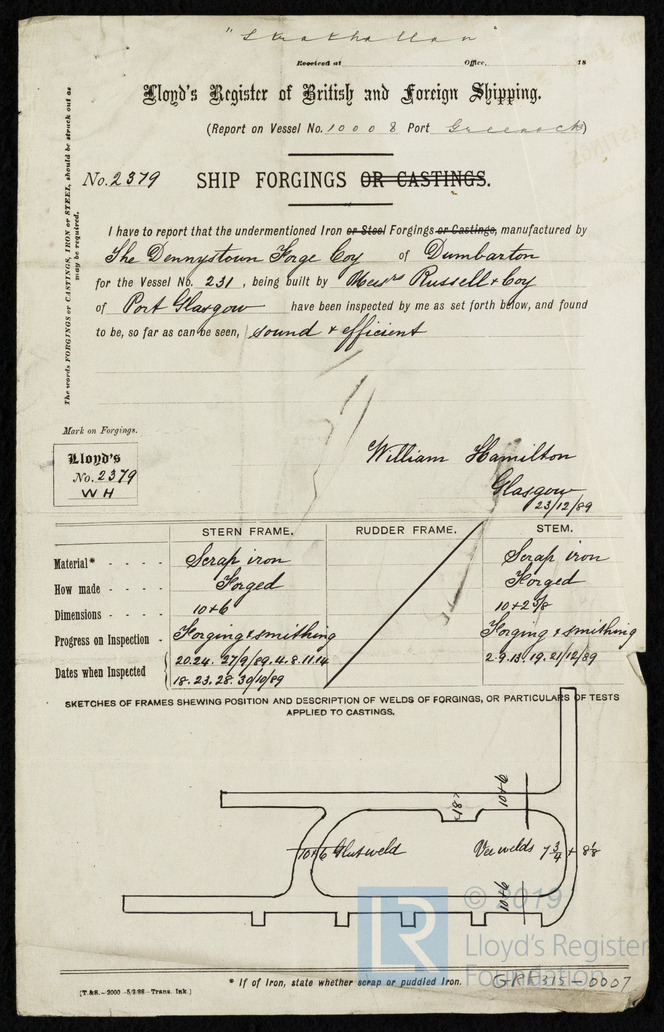 "Strathallan"
Received at Office, 18
Lloyd's Register of British and Foreign Shipping.
(Report on Vessel No. 10008 Port Greenock)
No. 2379 SHIP FORGINGS OR CASTINGS.
The words FORGINGS or CASTINGS, IRON or STEEL, should be struck out as
may be required.
I have to report that the undermentioned Iron or Steel Forgings or Castings, manufactured by
The Dennystown Forge Coy of Dumbarton
for the Vessel No. 231, being built by Messrs Russell & Coy
of Port Glasgow have been inspected by me as set forth below, and found
to be, so far as can be seen, sound & efficient
Mark on Forgings.
Lloyd's
No. 2379
WH
William Hamilton
Glasgow
23/12/89
STERN FRAME. RUDDER FRAME. STEM.
Material* - - - - Scrap iron Scrap iron
How made - - - - Forged Forged
Dimensions - - - - 10+6 10+2 5/8
Progress on Inspection - Forging & smithing Forging & smithing
Dates when Inspected { 20.24. 27/9/89. 4.8.11.14 2.9.13.19.21/12/89
18.23.28.30/10/89
SKETCHES OF FRAMES SHEWING POSITION AND DESCRIPTION OF WELDS OF FORGINGS, OR PARTICULARS OF TESTS
APPLIED TO CASTINGS.
18" 10+6
10+6 Glutweld Vee welds 7 3/4 + 8 1/8
10+6
© 2019
LR Lloyd's Register
Foundation
* If of Iron, state whether scrap or puddled Iron. GRK315-0007
(T.&S.-2000-5/3/88-Trans. Ink.)